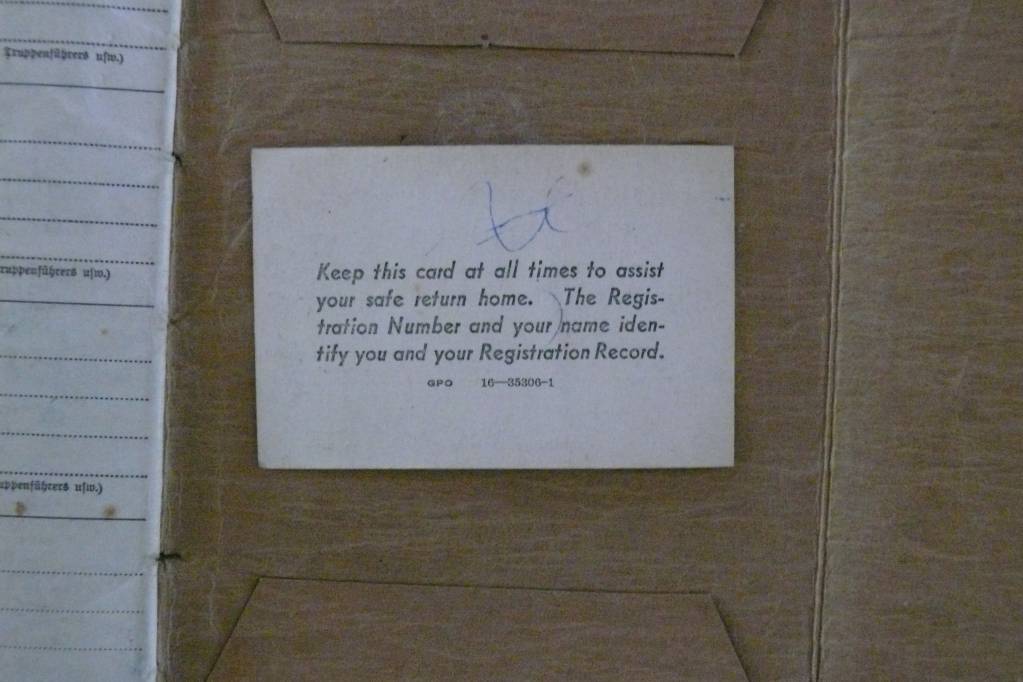 Truppenführers usw.)
Truppenführers usw.)
Truppenführers usw.)
Keep this card at all times to assist
your safe return home. The Regis-
tration Number and your name iden-
tify you and your Registration Record.
GPO 16—35306-1